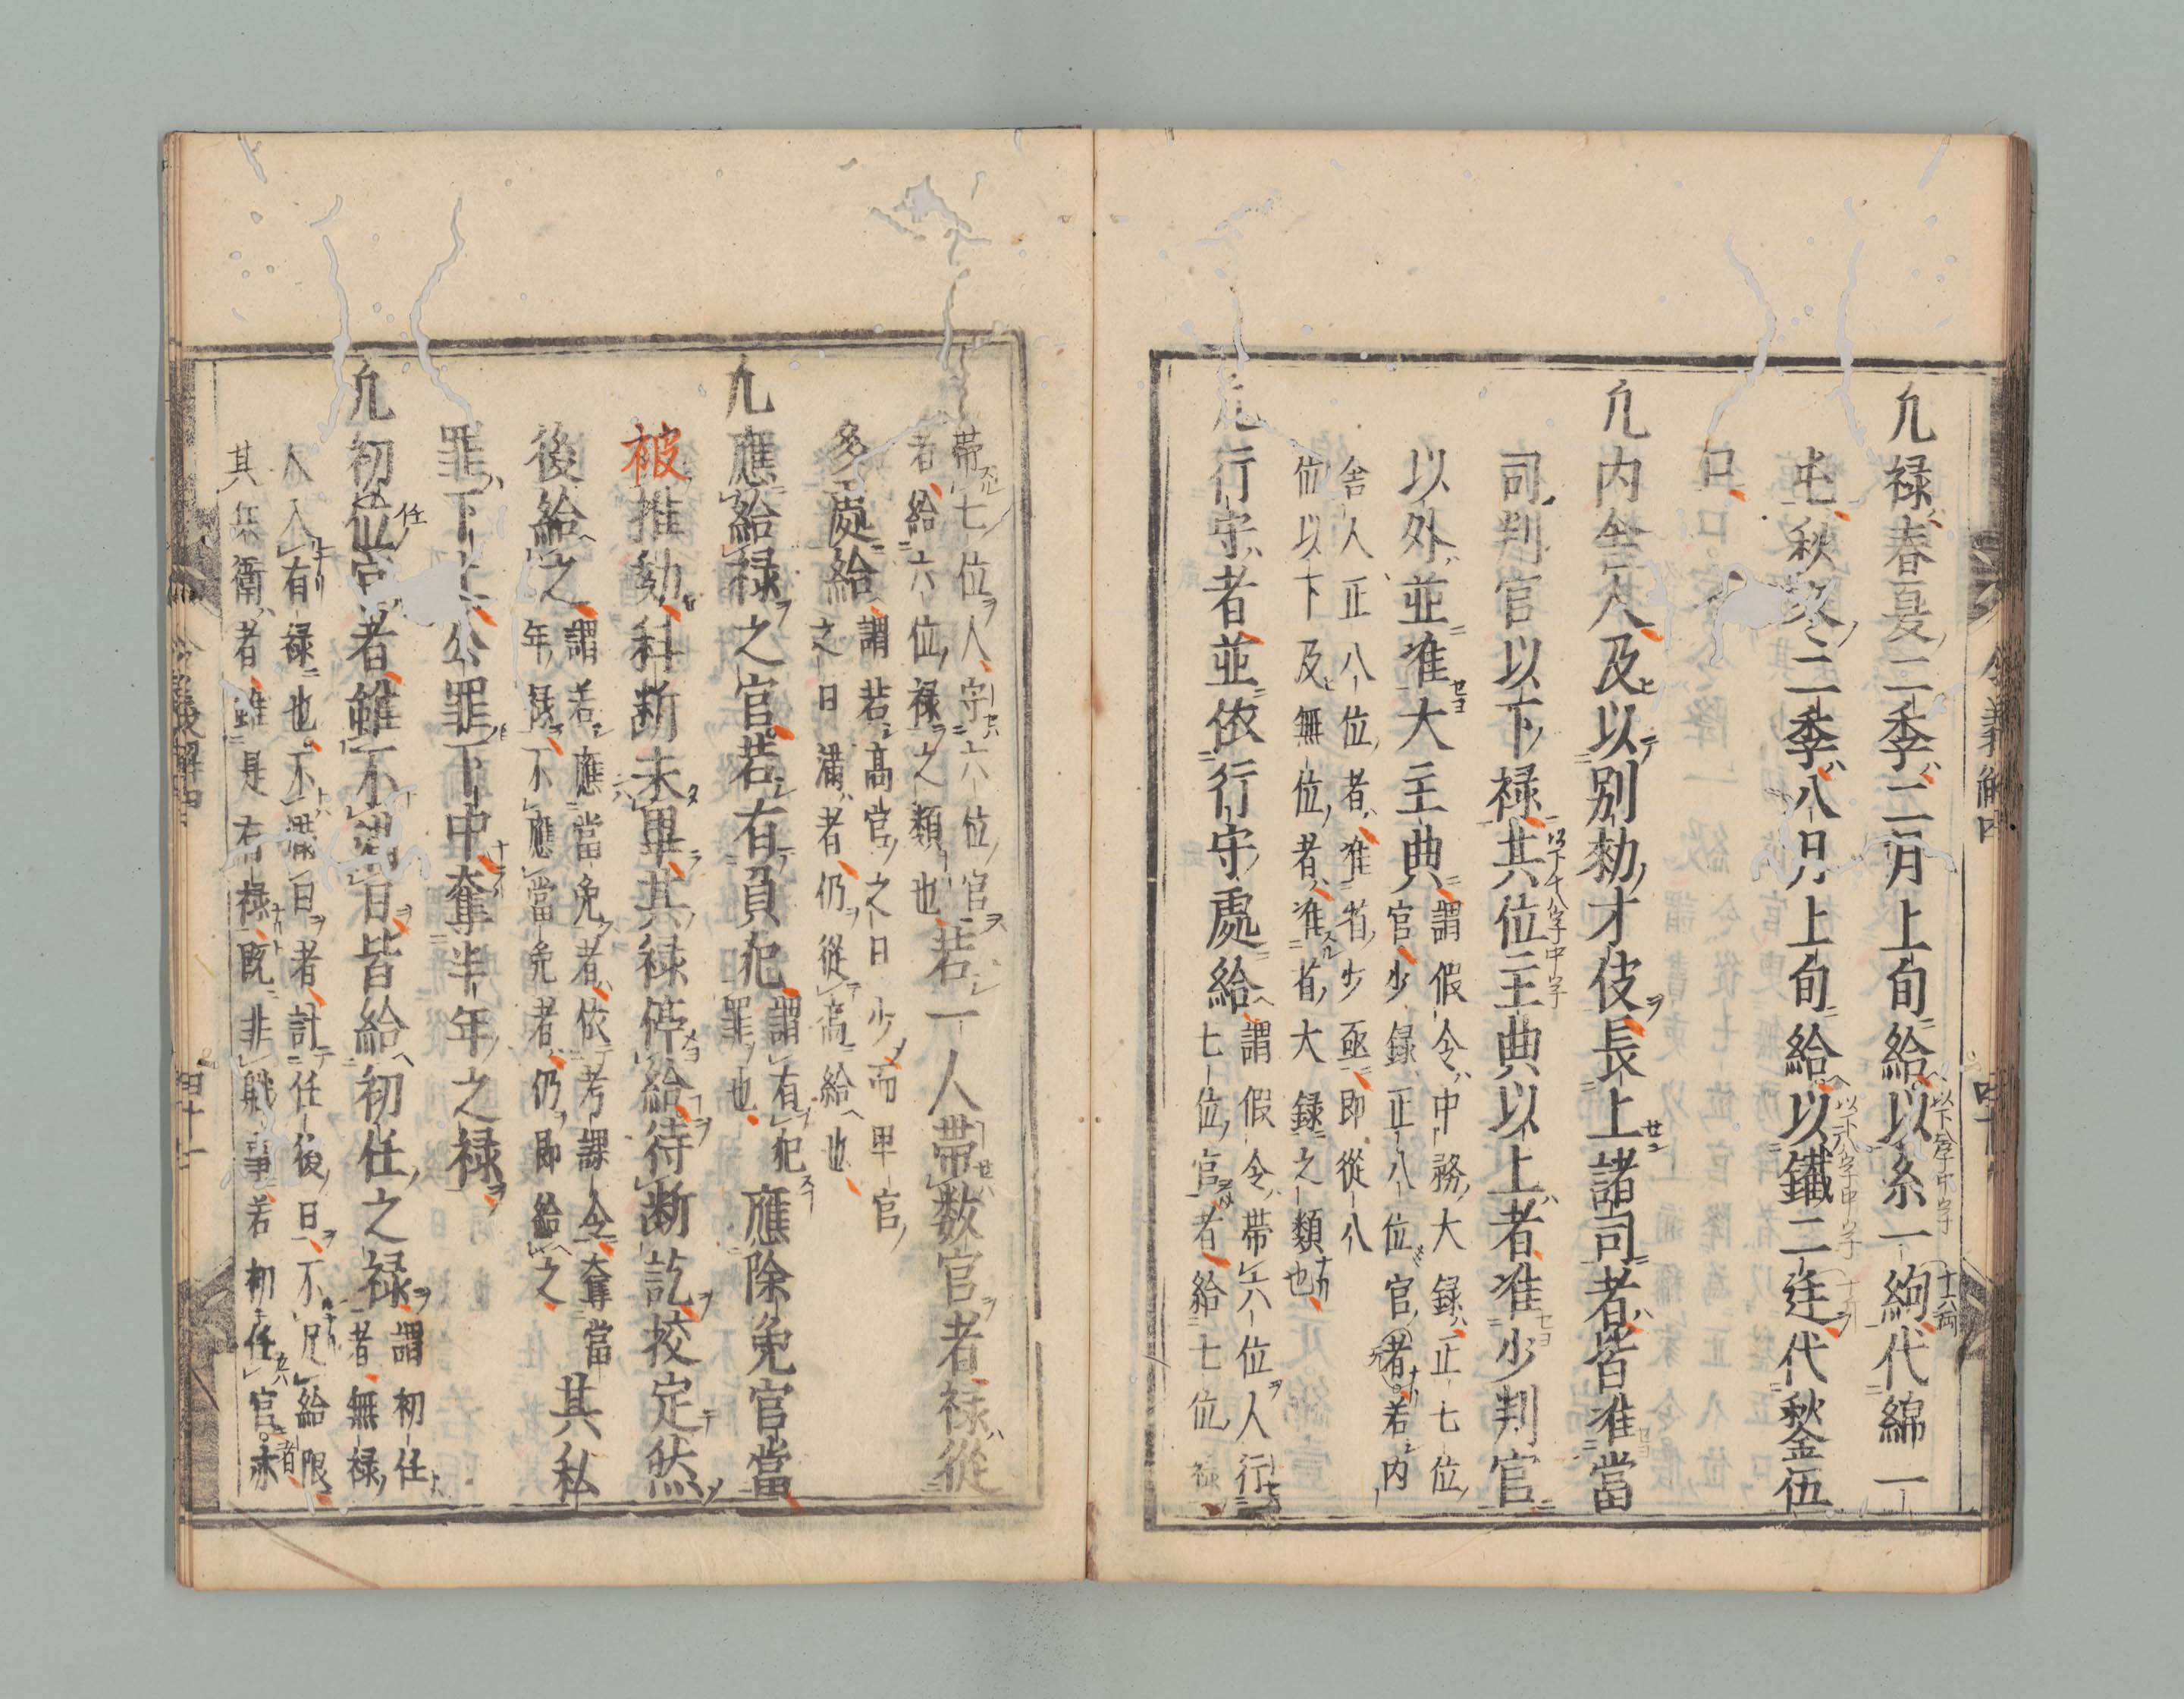 凢禄春夏二季二月上旬給以糸一絇代綿一
屯秋冬二季八月上旬給以鐵二廷代秋釡伍
口
凢内舎人及以別勅才伎長上諸司者皆准當
司判官以下禄其位主典以上者准少判官
以外並准大主典
謂假令中務大録正七位
官少録正八位官者若内
舎人正八位者准省少丞即從八
位以下及無位者准省大録之類也
凢行守者並依行守處給
謂假令帯六位人行
七位官者給七位禄
帯七位人守六位官
者給六位禄之類也
若一人帯数官者禄從
多處給
謂若高官之日少而卑官
之日満者仍從高給也
凢應給禄之官若有負犯
謂有犯
罪也
應除免官當
被推劾科断未畢其禄停給待断訖挍定然
後給之
謂若應當免者依考課令奪當
年禄不應當免者仍即給之
其私
罪下上公罪下中奪半年之禄
凢初位官者雖不満日皆給初任之禄
謂初任
者無禄
人入有禄也不満日者計任後日不足給限
其兵衛者雖是有禄既非軄事若初任官亦
令義解四
四十一